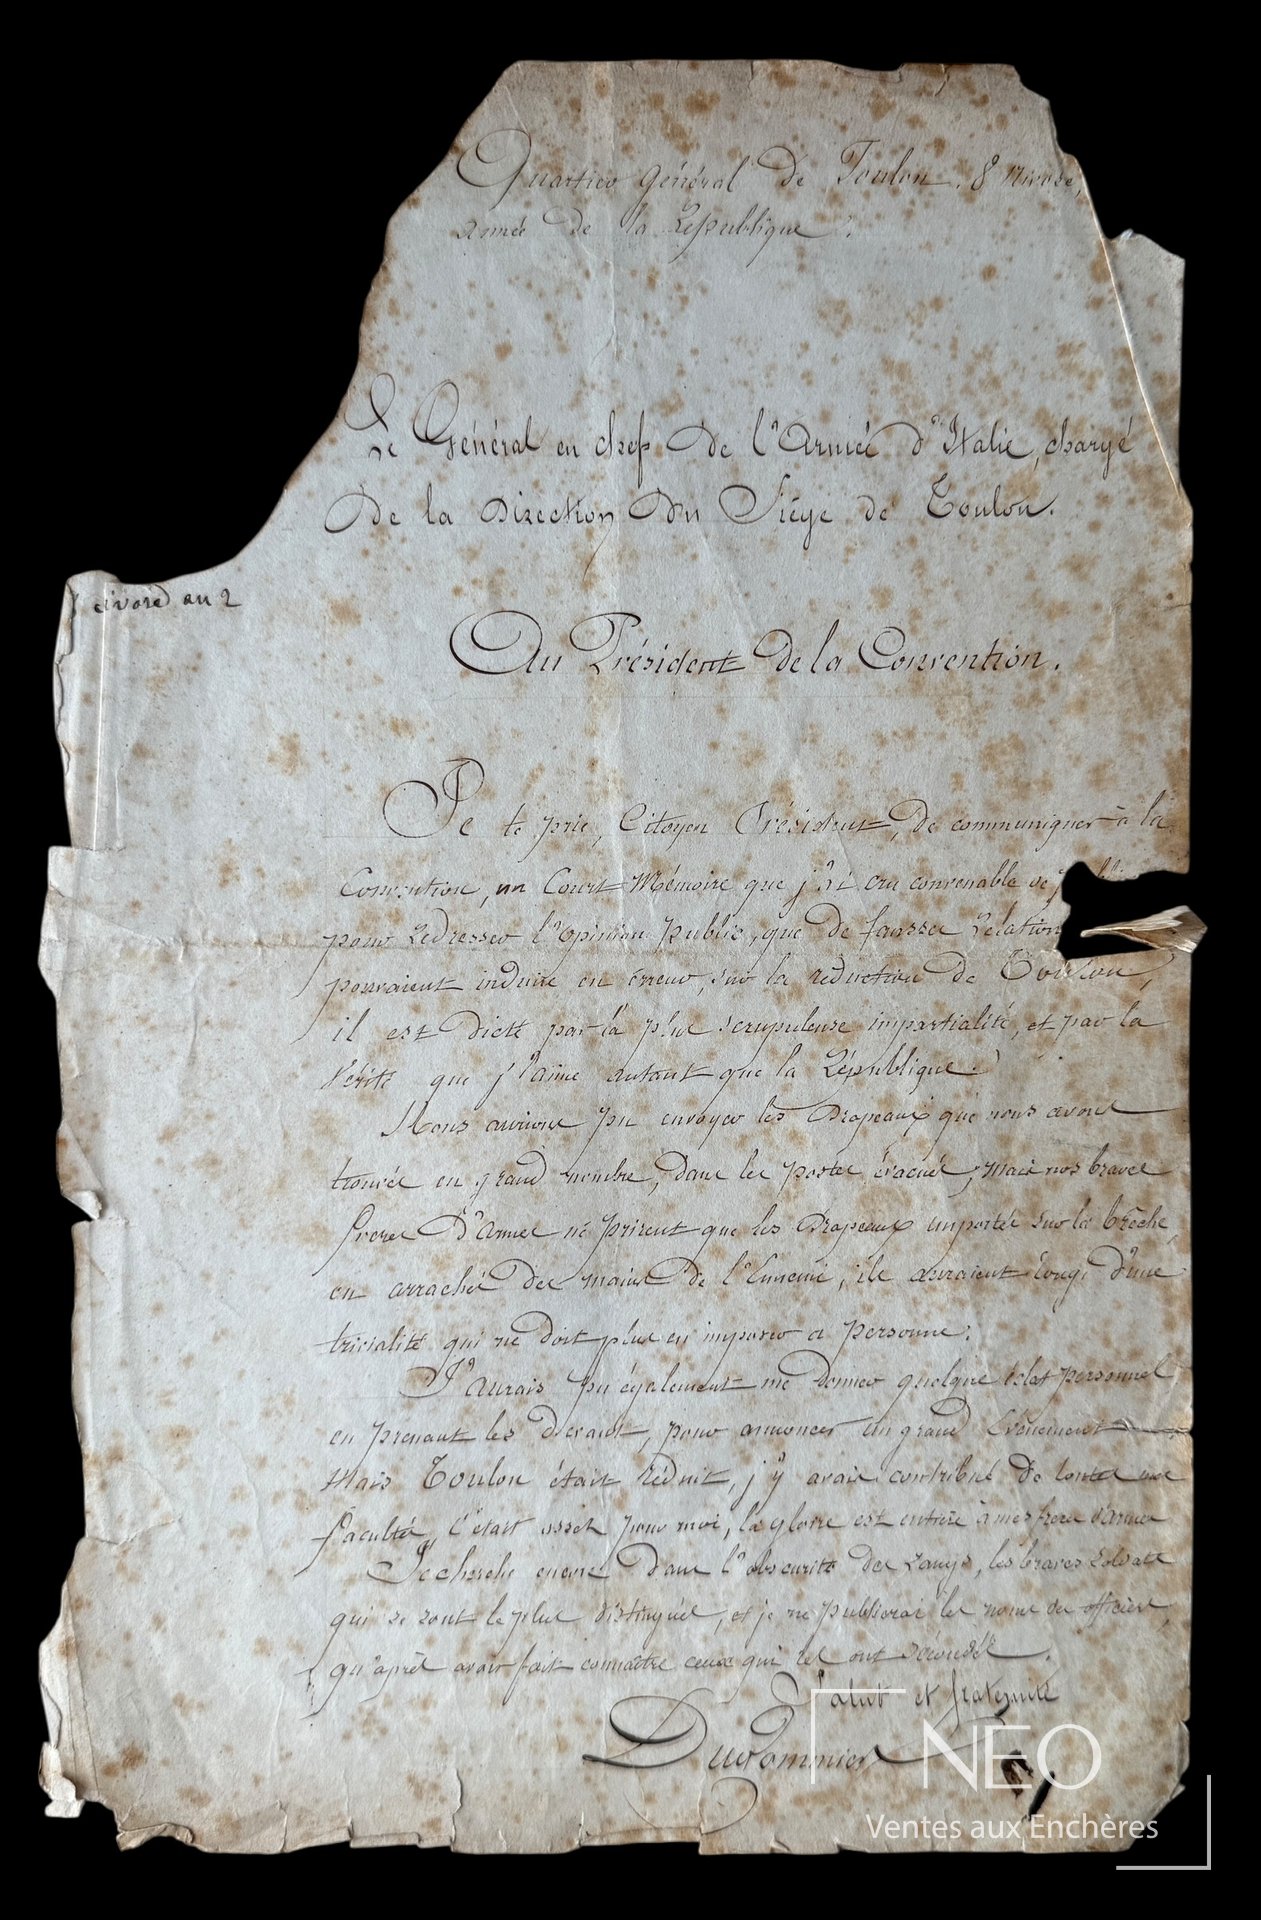 Quartier Général de Toulon. 8 Nivose,
armée de la République.
Le Général en chef de l'Armée d'Italie, chargé
de la Direction du Siége de Toulon.
nivose an 2
Au Président de la Convention.
Je te prie, Citoyen Président, de communiquer à la
Convention, un Court Mémoire que j'ai cru convenable de
pour Redresser l'opinion public, que de fausses Relation
pouvaient induire en erreur, sur la réduction de Toulon,
il est dicté par la plus scrupuleuse impartialité, et par la
vérité que j'aime autant que la République.
Nous aurions pu envoyer les Drapeaux que nous avons
trouvés en grand nombre, dans les postes évacués, mais nos braves
freres d'armes ne prisent que les Drapeaux emportés sur la brêche,
en arrachés des mains de l'Ennemi, ils auraient rougi d'une
trivialité qui ne doit plus en imposer a personne.
J'aurais pu également me donner quelque éclat personnel
en prenant les devant, pour annoncer un grand Evénement
Mais Toulon était réduit, j'y avais contribué de toutes mes
facultés, c'était assez pour moi, la gloire est entière à mes freres d'armes
Je cherche encore dans l'obscurité des rangs, les braves soldats
qui se sont le plus distingués, et je ne publierai les noms des officiers,
qu'aprés avoir fait connaître ceux qui les ont sécondés.
Salut et fraternité
Dugommier
NEO
Ventes aux Enchères